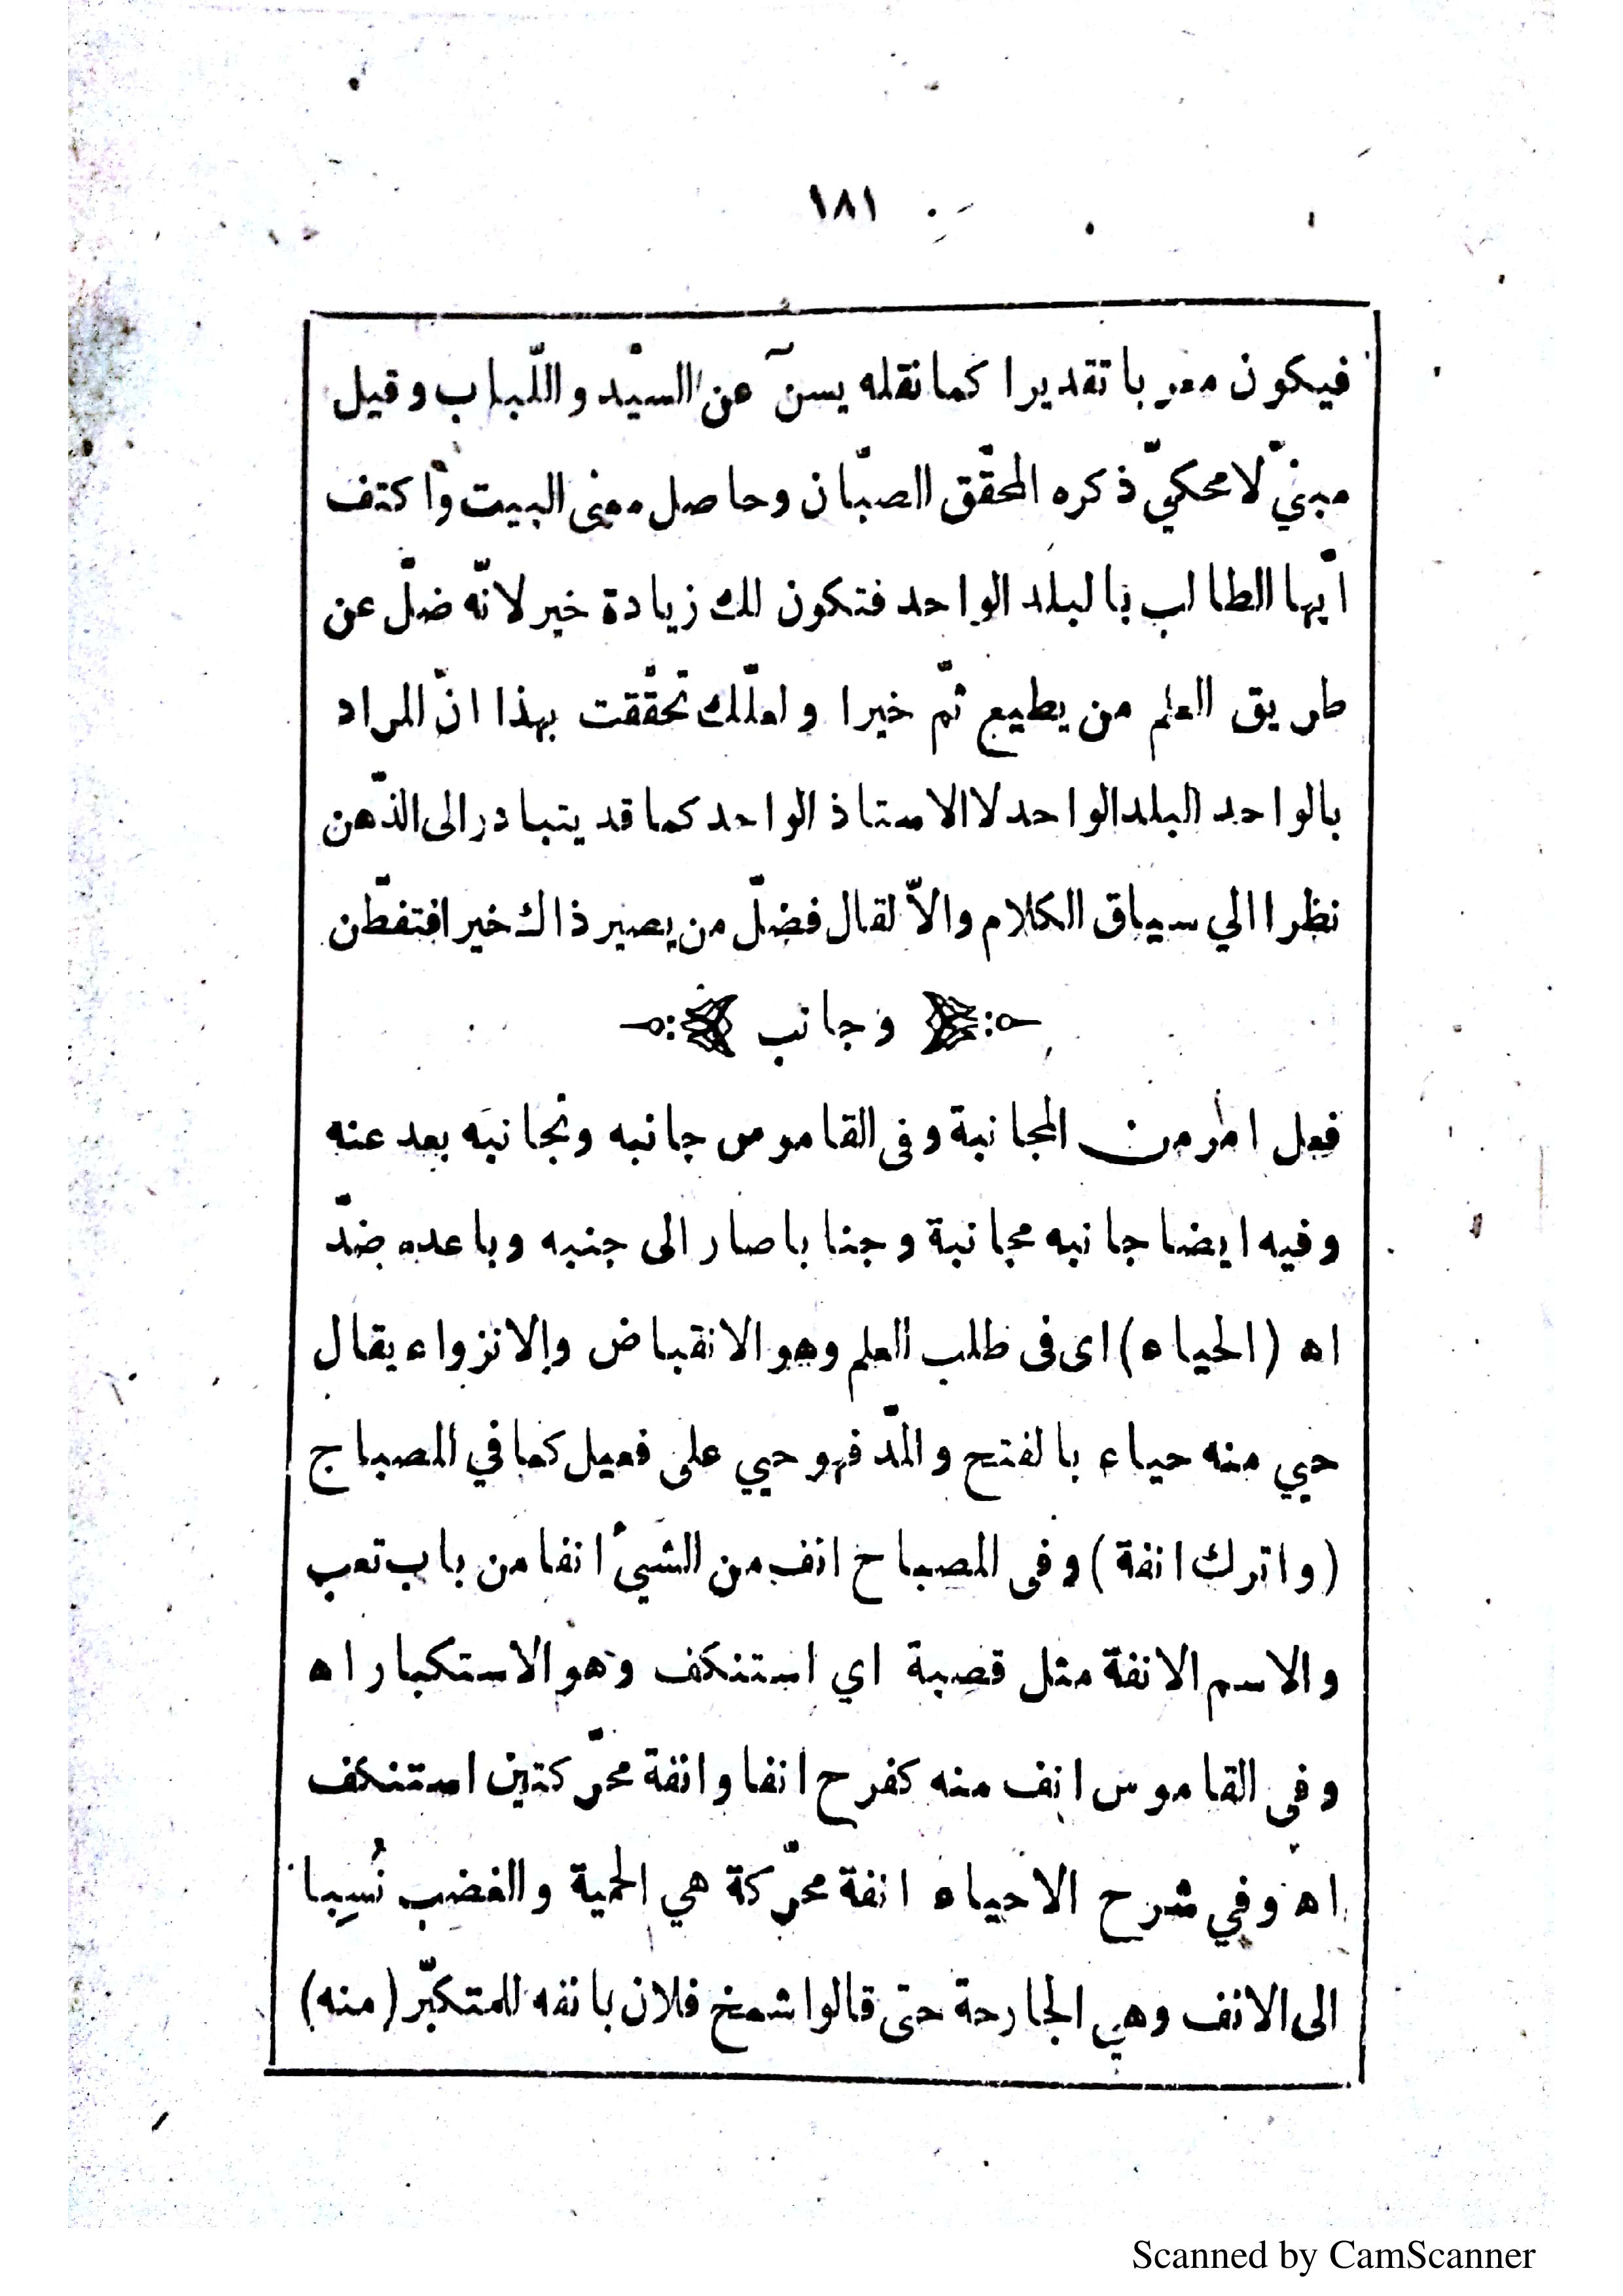 ١٨١
فيكون معربا تقديرا كما نقله يسنٓ عن السيّد واللّباب وقيل
مبنيّ لا محكيّ ذكره المحقّق الصبّان وحاصل معنى البيت واكتف
ايّها الطالب بالبلد الواحد فتكون لك زيادة خير لانّه ضلّ عن
طريق العلم من يطيع ثمّ خيرا ولعلّك تحقّقت بهذا انّ المراد
بالواحد البلد الواحد لا الاستاذ الواحد كما قد يتبادر الى الذّهن
نظرا الي سياق الكلام والاّ لقال فضلّ من يصير ذاك خيرا فتفطّن
وجانب
فعل امر من المجانبة وفى القاموس جانبه وتجانبه بعد عنه
وفيه ايضا جانبه مجانبة وجنابا صار الى جنبه وباعده ضدّ
اه (الحياء) اى فى طلب العلم وهو الانقباض والانزواء يقال
حيي منه حياء بالفتح والمدّ فهو حيي على فعيل كما في المصباح
(واترك انفة) وفى المصباح انف من الشيئ انفا من باب تعب
والاسم الانفة مثل قصبة اي استنكف وهو الاستكبار اه
وفى القاموس انف منه كفرح انفا وانفة محرّكتين استنكف
اه وفي شرح الاحياء انفة محرّكة هي الحمية والغضب نُسِبا
الى الانف وهي الجارحة حتى قالوا شمخ فلان بانفه للمتكبّر (منه)
Scanned by CamScanner